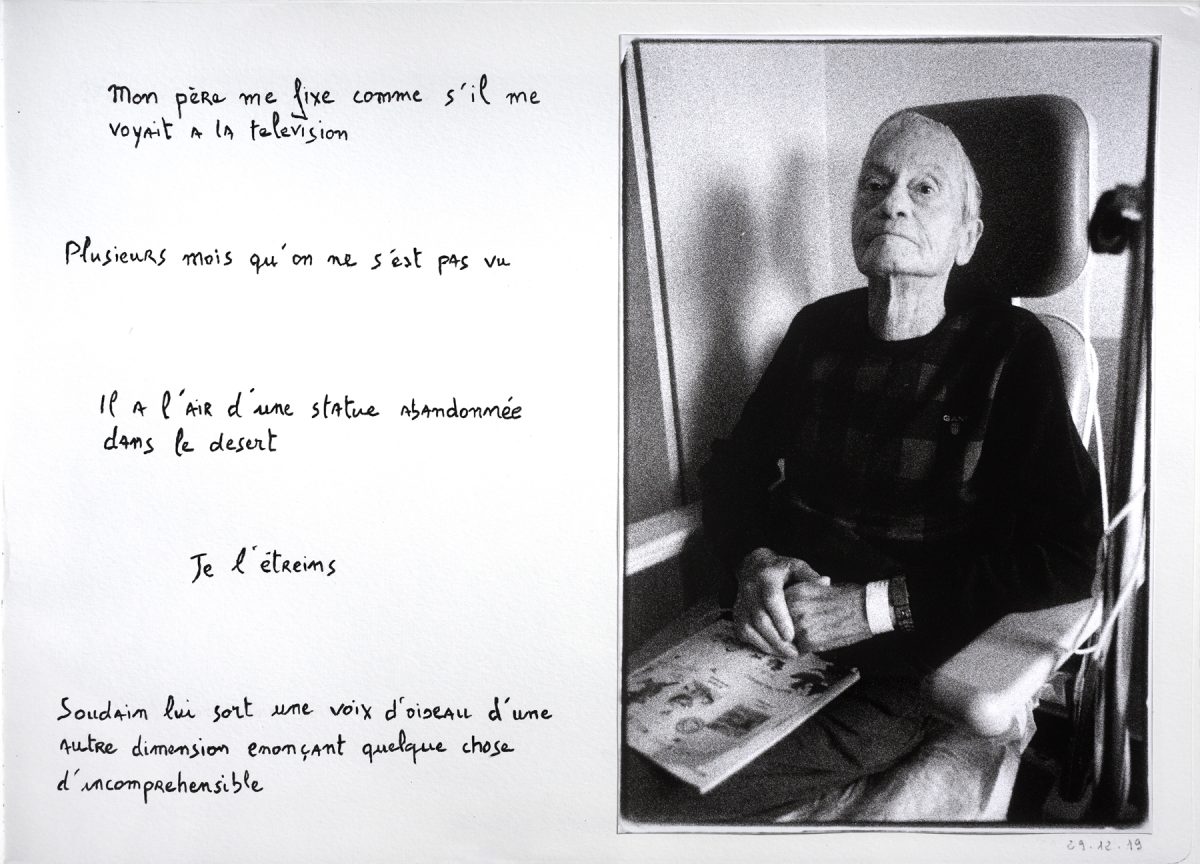 Mon père me fixe comme s'il me
voyait a la television
Plusieurs mois qu'on ne s'est pas vu
Il a l'air d'une statue abandonnée
dans le desert
Je l'étreins
Soudain lui sort une voix d'oiseau d'une
autre dimension enonçant quelque chose
d'incomprehensible
GANT
29.12.19